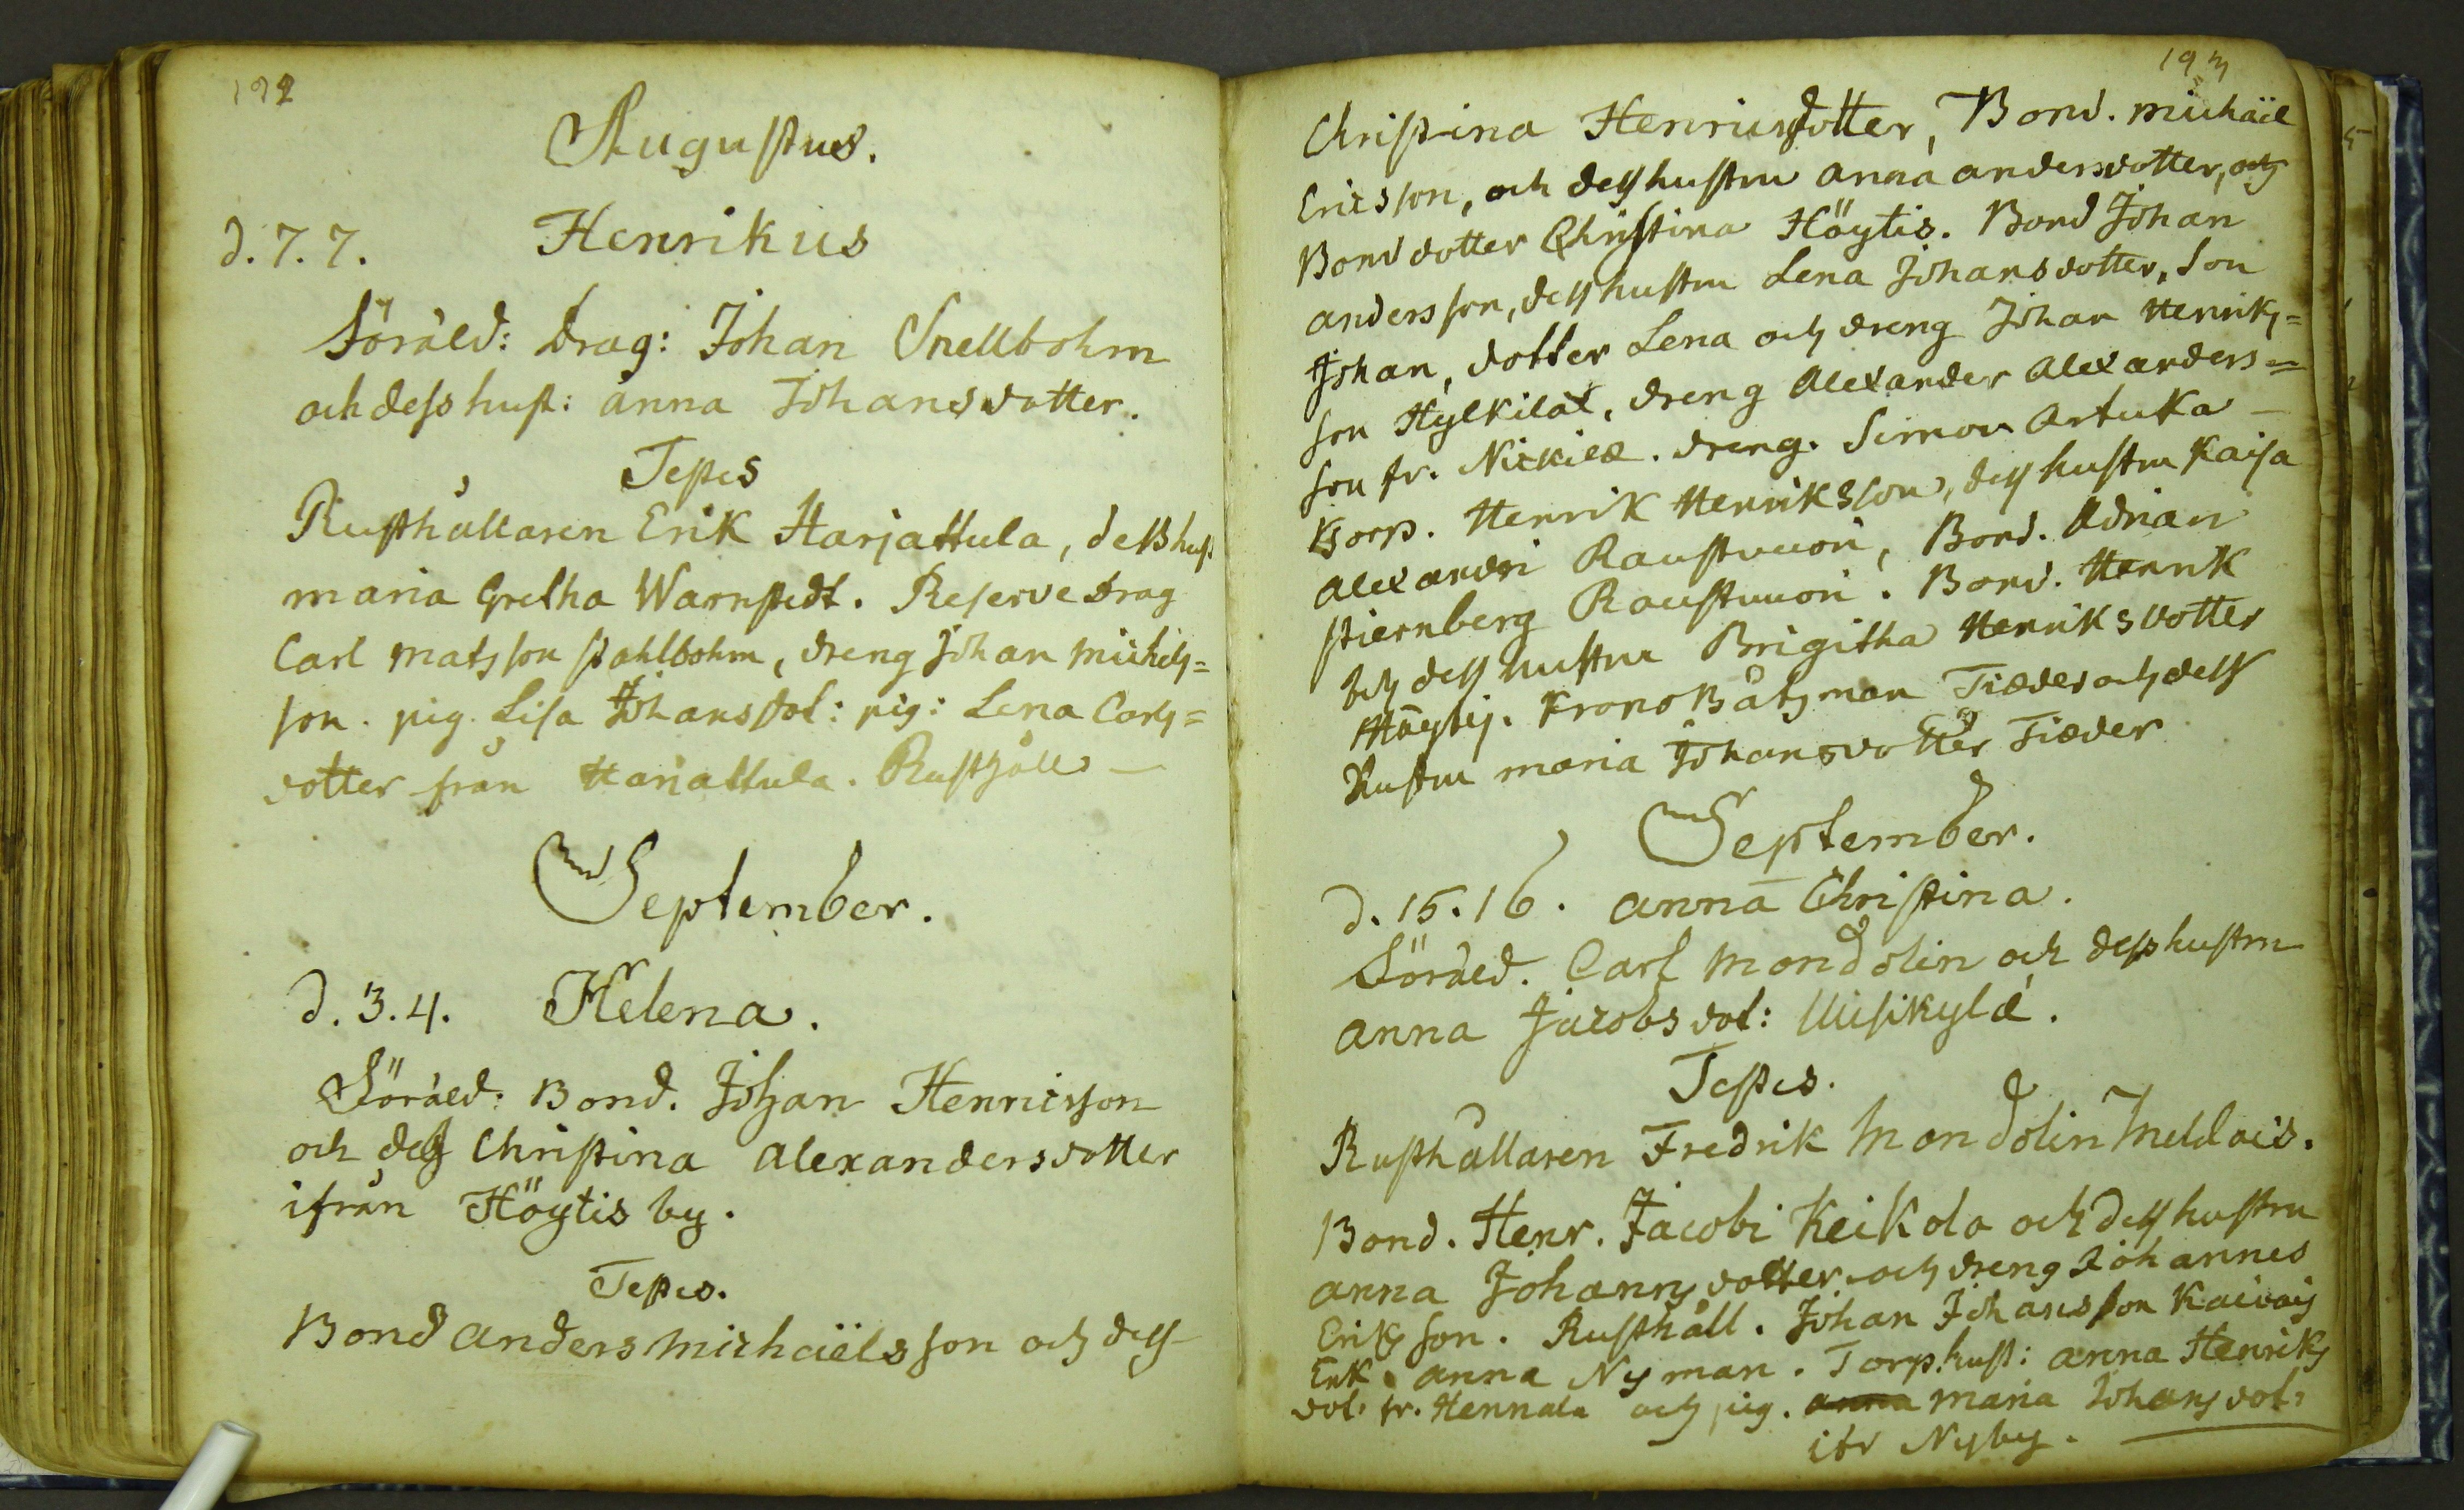 192
Augustus.
d. 7. 7. Henrikus
Föräld: Drag: Johan Snellbohm
och dess hust: Anna Johansdotter.
Testes
Rusthållaren Erik Harjattula, dess hust
Maria Gretha Warnstedt. Reserve Drag
Carl Matsson Stahlbohm, dreng Johan Michels=
son. pig. Lisa Johansdot: pig: Lena Carls=
dotter från Hariattula. Rusthåll
September.
d. 3. 4. Helena.
Föräld: Bond. Johan Henricsson
och dess Christina Alexandersdotter
ifrån Höytis by.
Testes.
Bond Anders Michaëlsson och dess
193
Christina Henricsdotter, Bond. Michaël
Ericsson, och dess hustru Anna Andersdotter, och
Bond dotter Christina Höytis. Bond Johan
Andersson, dess hustru Lena Johansdotter, Son
Johan, dotter Lena och dreng Johan Henriks=
son Hylkilä, dreng Alexander Alexanders=
son fr. Nickilä. dreng. Simon Artuka
Korp. Henrik Henriksson, dess hustru Kaisa
Alexandri Raustvuori, Bond. Adrian
Stiernberg Raustvuori. Bond. Henrik
och dess hustru Brigitha Henriksdotter
Höytis. Krono Båtsman Tiæder och dess
Hustru Maria Johansdotter Tiæder
September.
d. 15. 16. Anna Christina.
Föräld. Carl Mondolin och dess hustru
Anna Jacobsdot: Uusikylä.
Testes.
Rusthållaren Fredrik Mondolin Meldois.
Bond. Henr. Jacobi Keikola och dess hustru
Anna Johansdotter och dreng Johannes
Eriksson. Rusthåll. Johan Johansson Kaivois
Enk. Anna Nyman. Torp. hust: Anna Henriks
dot. fr. Hennala och pig. Maria Johansdot:
ifr Nyby.